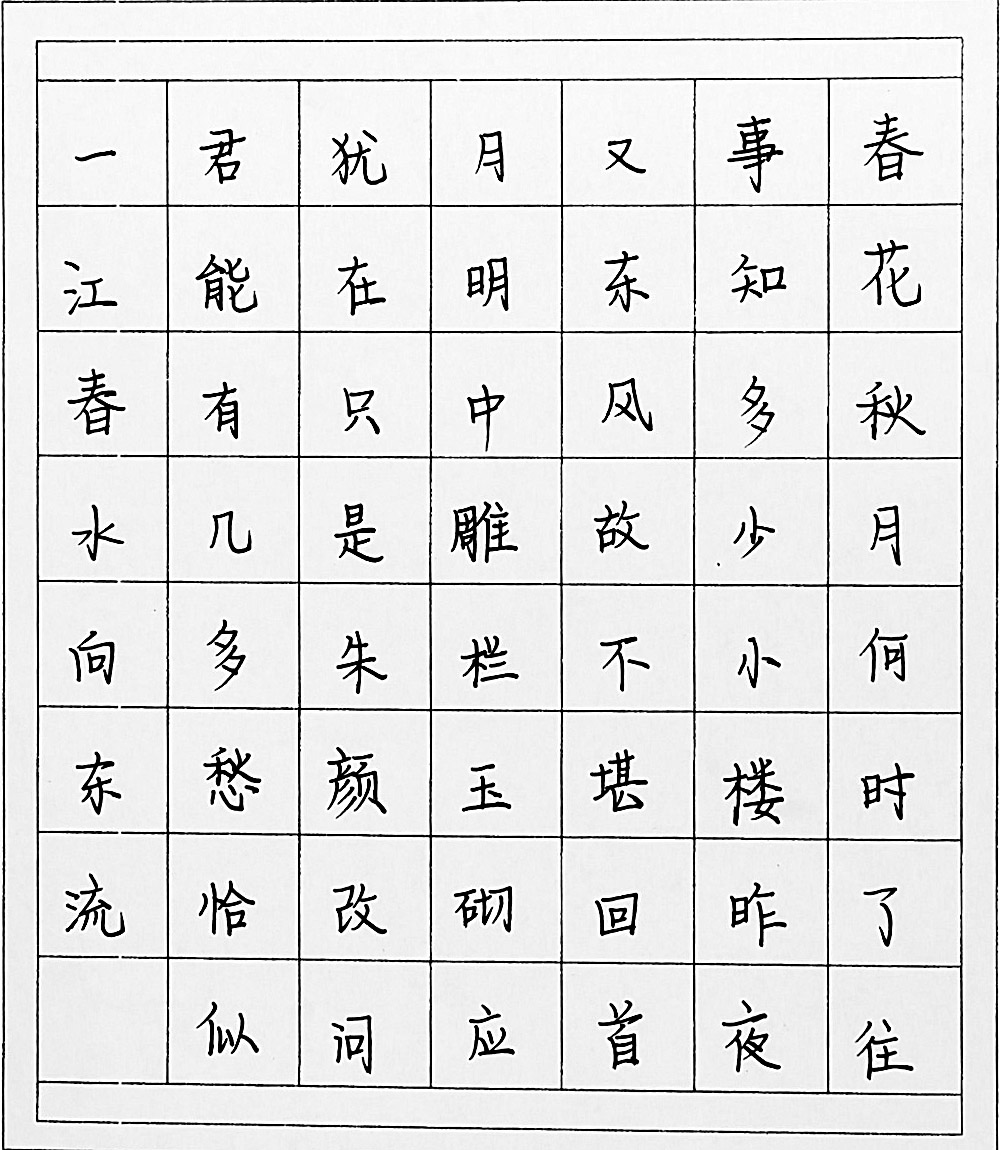 春花秋月何时了往
事知多少小楼昨夜
又东风故不堪回首
月明中雕栏玉砌应
犹在只是朱颜改问
君能有几多愁恰似
一江春水向东流